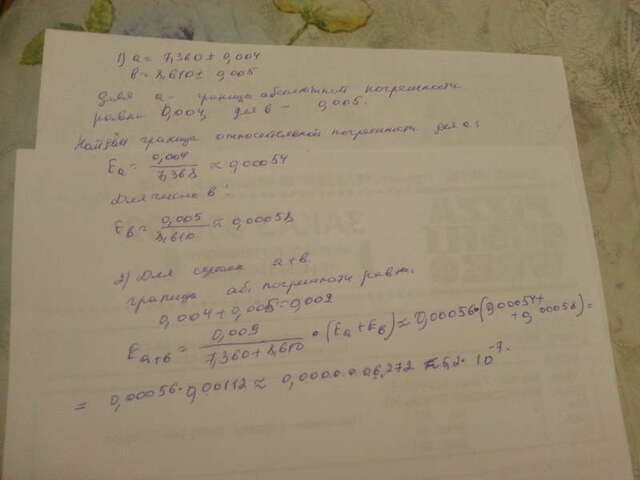 1) a = 7,360 ± 0,004
в = 8,610 ± 0,005
Для а - граница абсолютной погрешности
равна 0,004, для в - 0,005.
Найдём границы относительной погрешности для а:
Ea = 0,004 / 7,368 ≈ 0,00054
Для числа в:
Eв = 0,005 / 8,610 ≈ 0,00058
2) Для суммы а+в.
граница аб. погрешности равна.
0,004 + 0,005 = 0,009
Ea+в = 0,009 / 7,360 + 8,610 • (Ea + Eв) ≈ 0,00056 • (0,00054 + 0,00058) =
= 0,00056 • 0,00112 ≈ 0,0000006272 ≈ 6,2 • 10⁻⁷.